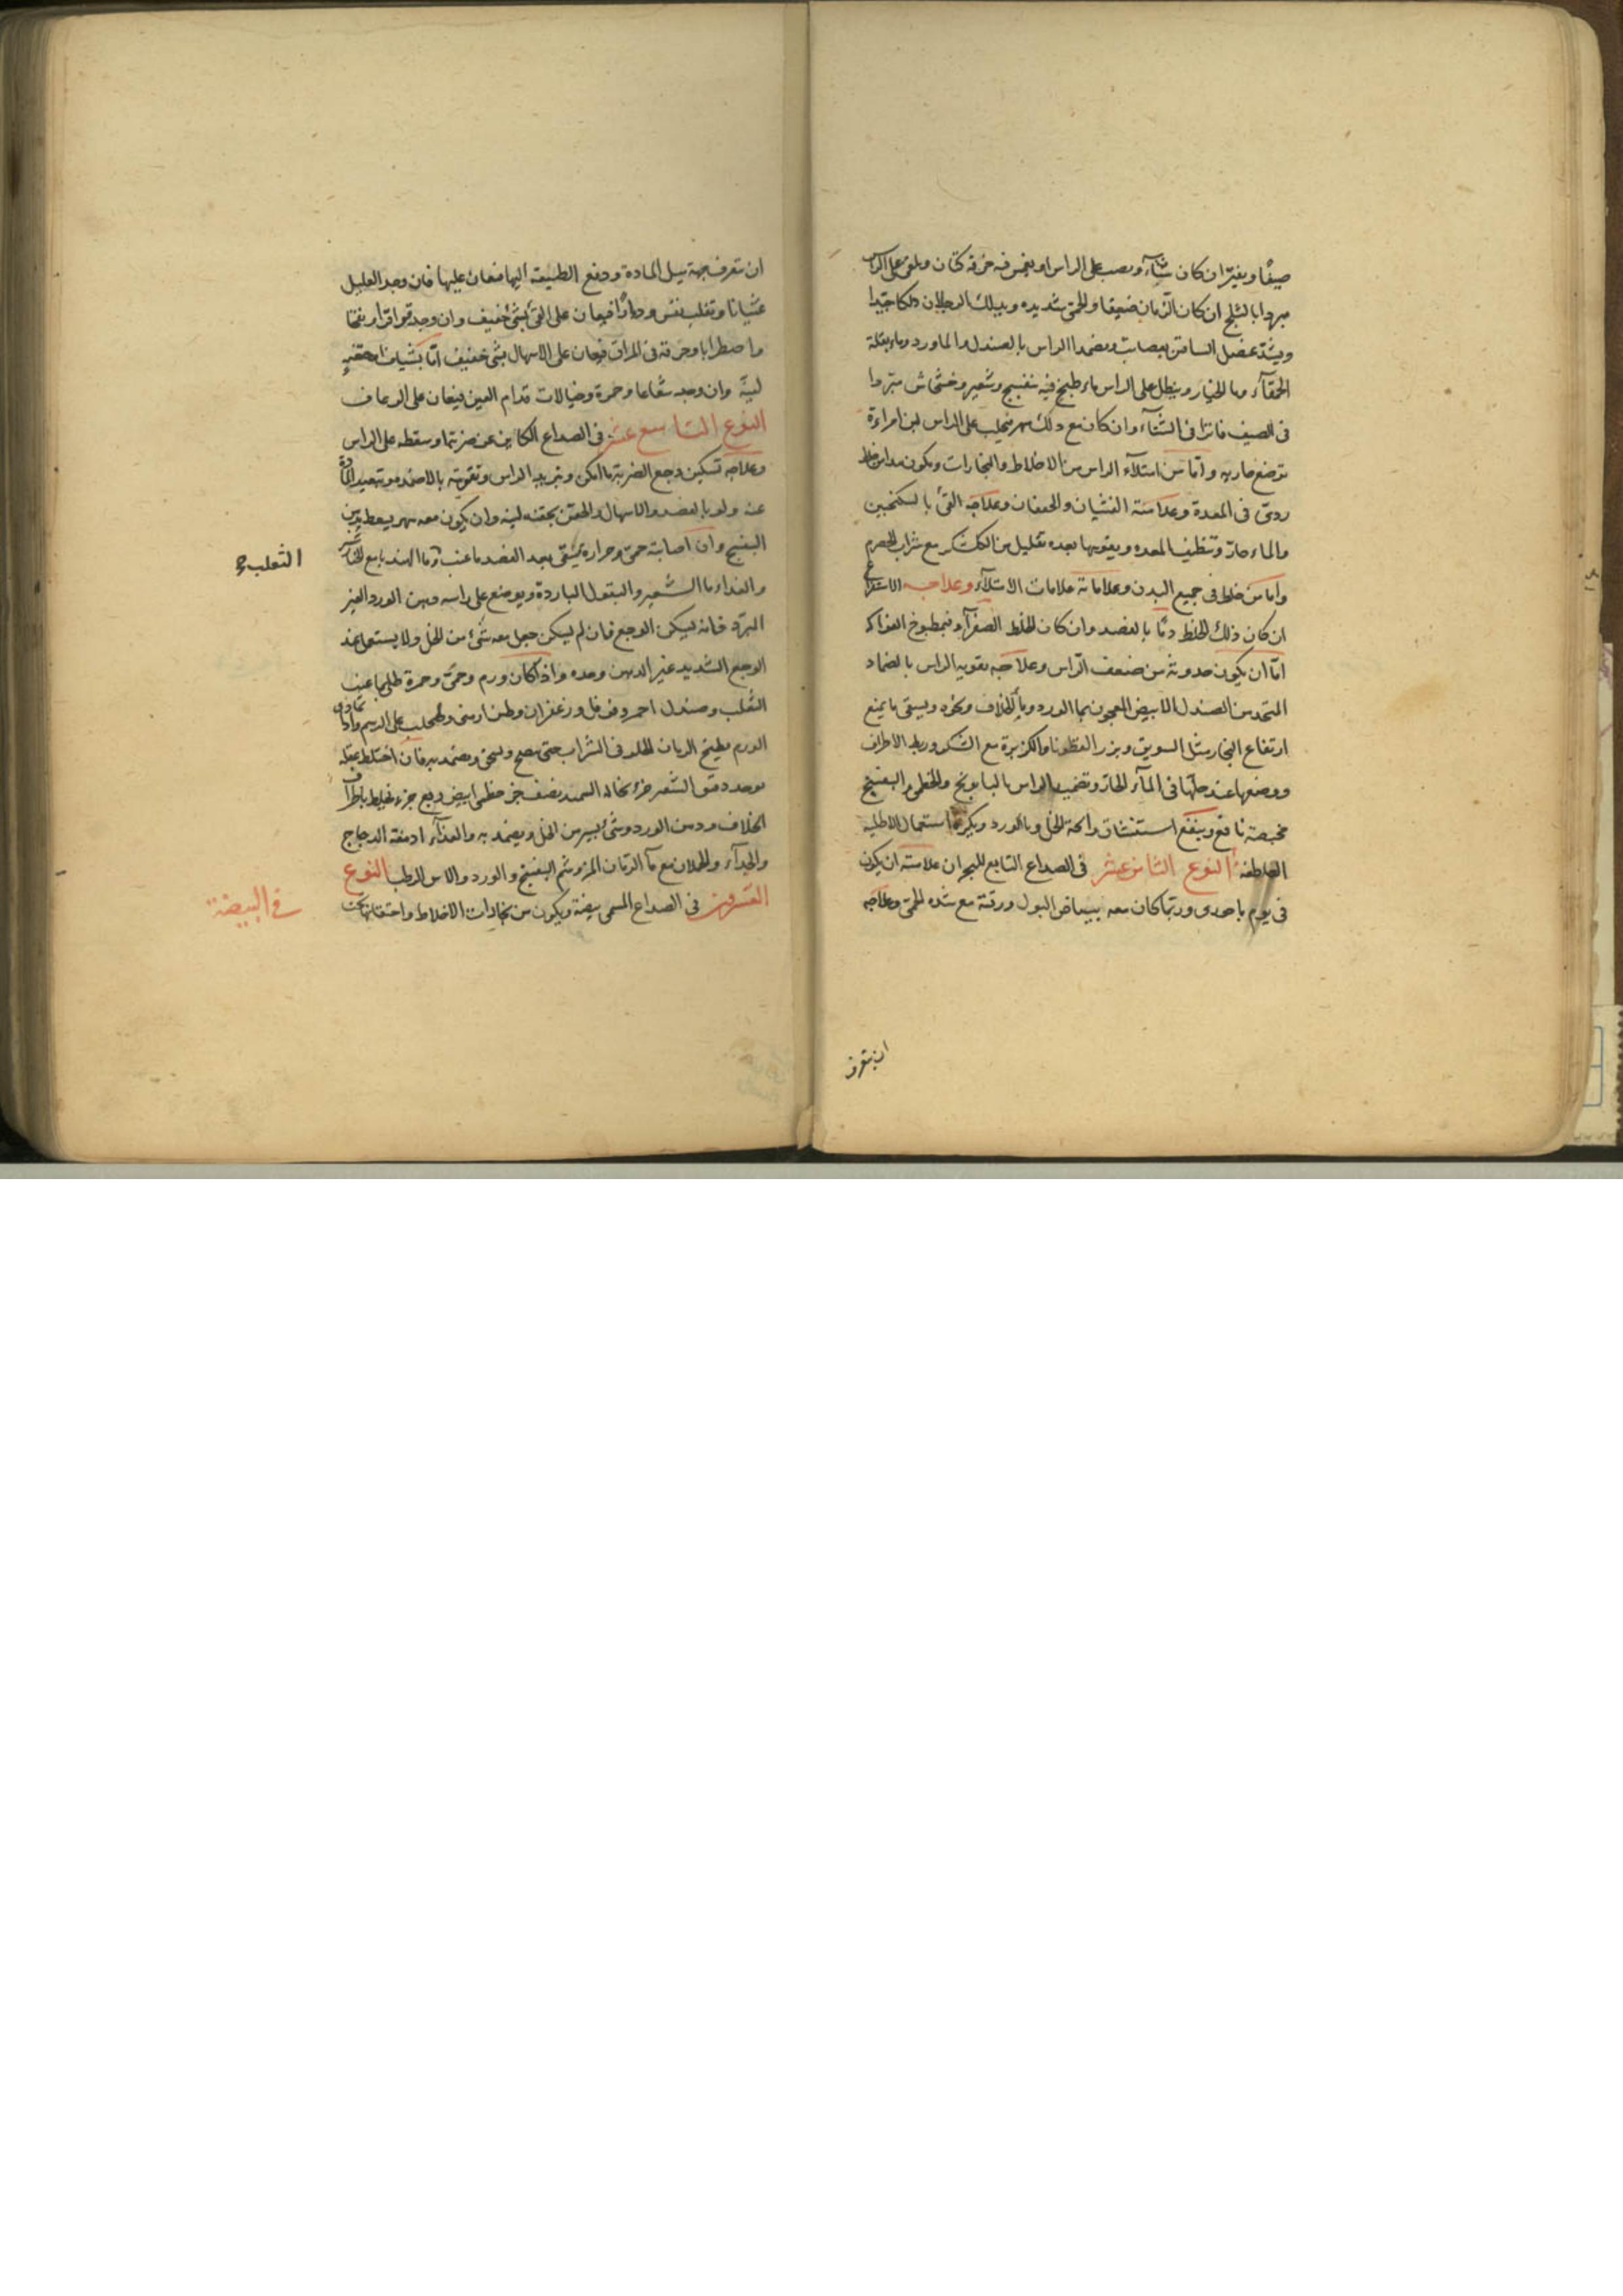 صيفًا ويفتر ان كان شتآء ويصب على الراس او يغمس فيه خرقه كتان ويلقى على الراس
مبردا بالثلج ان كان الزمان ضيفا والحمى شديده ويدلك الرجلان دلكا جيّدا
ويشدّ عضل الساقين بعصاب ويضمد الراس بالصندل والماورد وماء بقلة
الحمقآء وما الخيار وينطل على الراس ماء طبخ فيه بنفسج وشعير وخشخاش مبردا
فى الصيف فاترا فى الشتآء وان كان مع ذلك سهر فيحلب على الراس لبن امراءة
ترضع جاريه واما من امتلآء الراس من الاخلاط والبخارات ويكون مد من خلط
ردىّ فى المعدة وعلامته الغشيان والخفقان وعلاجه القئ بالسكنجبين
والماء حارّ وتنظيف المعده ويقويها بعده بقليل من الكعك مع شراب الحصرم
واما من خلط فى جميع البدن وعلاماته علامات الامتلآء وعلاجه الاستفراغ
ان كان ذلك الخلط دمًا بالفصد وان كان الخلط الصفرآء فبمطبوخ الفواكه
امّا ان يكون حدوثه من ضعف الرّاس وعلاجه تقويه الراس بالضماد
المتخد من الصندل الابيض المعجون بما الورد وماء الخلاف ونحوه ويسقى ما يمنع
ارتفاع البخار مثل السويق وبزر القطونا والكزبرة مع السّكر وربط الاطراف
ووضعها عند حلّها فى المآء الحارّ وتضميد الراس بالبابونج والخطمى والبنفسج
مخبصة نافع وينفع استنشاق رائحة الخل وماالورد ويكره استعمال الاطليه
العاطفه النوع الثامن عشر فى الصداع التابع للبحران علامته ان يكون
فى يوم باحورى وربّما كان معه بياض البول ورقته مع شده الحمى وعلاجه
ان تعرف
ان تعرف جهة ميل المادة ودفع الطبيعه اليها فتعان عليها فان وجد العليل
غثيانا وتقلب نفس ودوارًا فيعان على القئ بشئ خفيف وان وجد قراقرا ونفخا
واضطرابا وحرقة فى المراق فيعان على الاسهال بشى خفيف امّا بشياف او حقنه
لينة وان وجد شعاعا وحمرة وخيالات قدام العين فيعان على الرعاف
النوع التاسع عشر فى الصداع الكاين عن ضربة او سقطه على الراس
وعلاجه تسكين وجع الضربة ما امكن وتبريد الراس وتقويته بالاضمدة وتبعيد المادة
عنه ولو بالفصد والاسهال والحقن بحقنه لينه وان يكون معه سهر يسعط بدهن
البنفسج وان اصابته حمى وحرارة يسقى بعد الفصد ما عنب وما الهندبا مع الخيارشنبر
الثعلب صح
والغداء ما الشعير والبقول الباردة ويوضع على راسه دهن الورد الغير
المبرّد فانه يسكن الوجع فان لم يسكن جعل معه شئ من الخل ولا يستعمل عند
الوجع الشديد غير الدهن وحده واذا كان ورم وحمى وحمرة طلى بماعنب
الثعلب وصندل احمر وفوفل وزعفران وطين ارمنى وطحلب على الرسم واذا تمادى
الورم يطبخ الرمان الحلو فى الشراب حتى ينضج ويسحق ويضمد به فان اختلط عقله
يوخد دقيق الشعير جزء نخاله السميد نصف جزء خطمى ابيض ربع جزء يخلط باطراف
الخلاف ودهن الورد وشئ يسير من الخل ويضمد به والغذآء ادمغه الدجاج
والجدآء والحملان مع مآ الرمان المز وشم البنفسج والورد والاس الرطب النوع
العشرون فى الصداع المسمى بيضة ويكون من بخارات الاخلاط واحتقانها تحت
فى البيضة